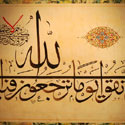 الله
تقوا يوما ترجعون فيه